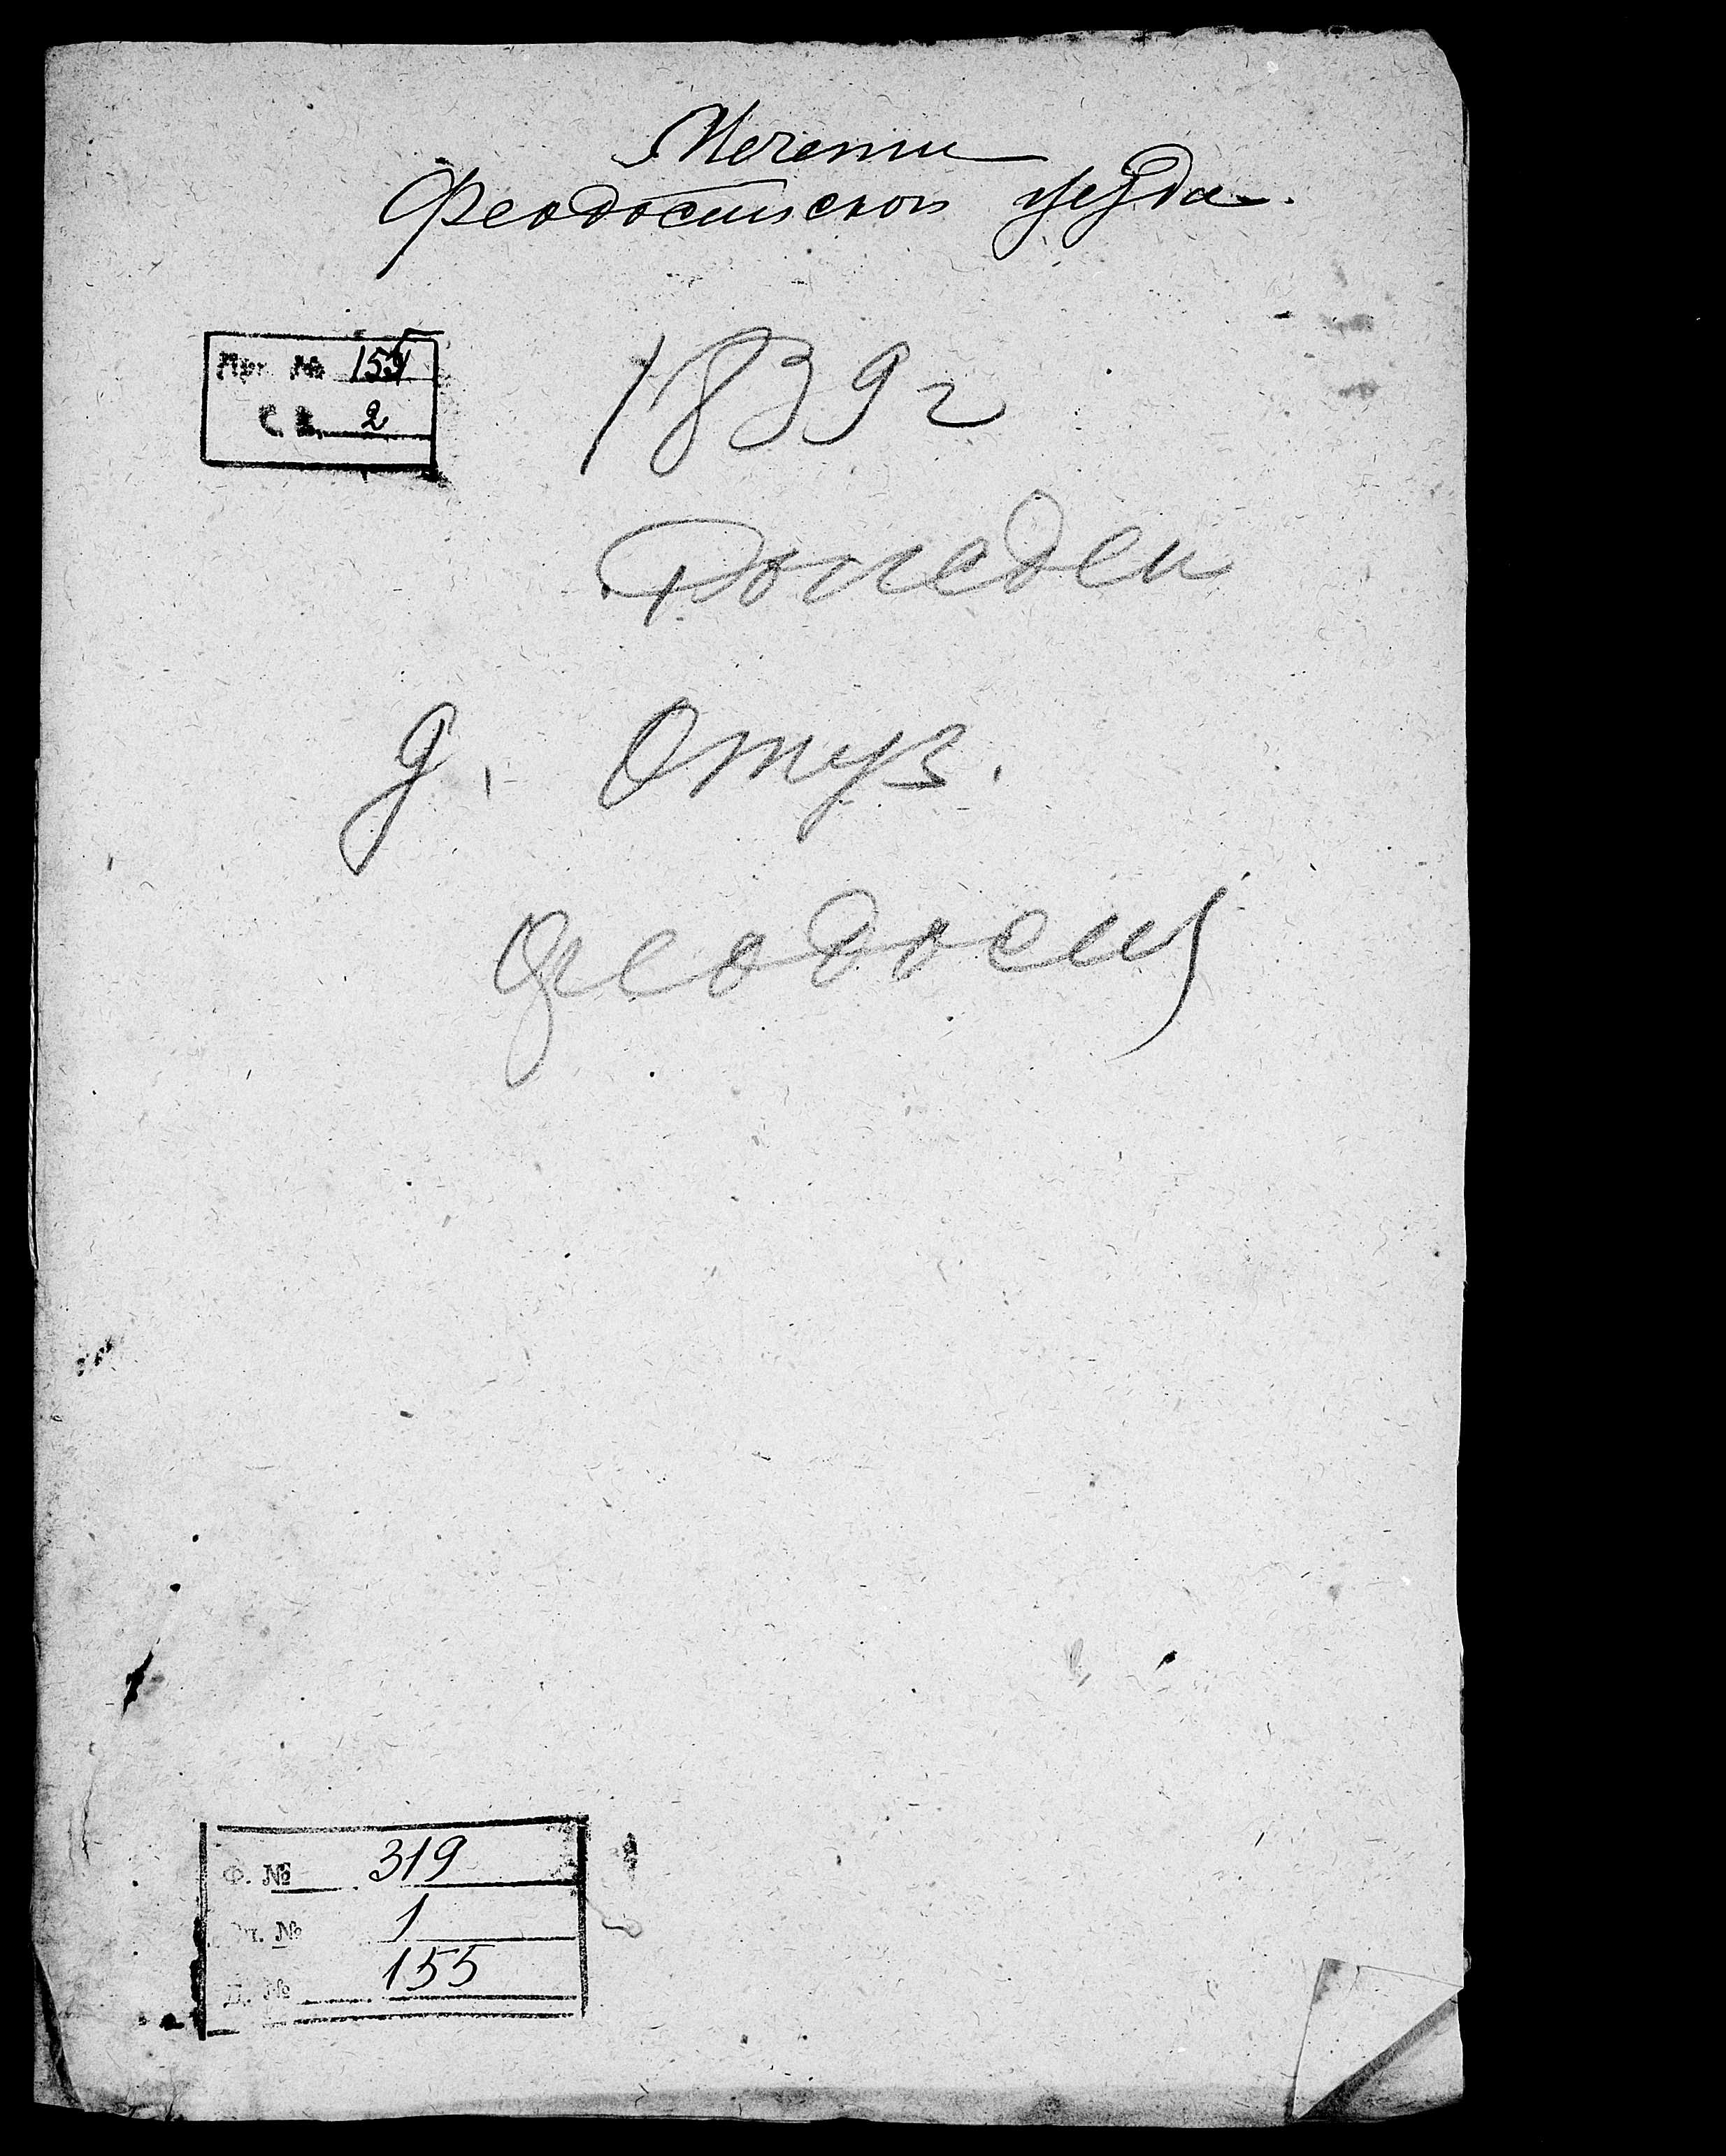 Мечети
Феодосийского уезда.
Арх № 155
Св. 2
1839 г
Рожден
д. Отуз.
Феодосия
Ф. № 319
Оп. № 1
Д. № 155